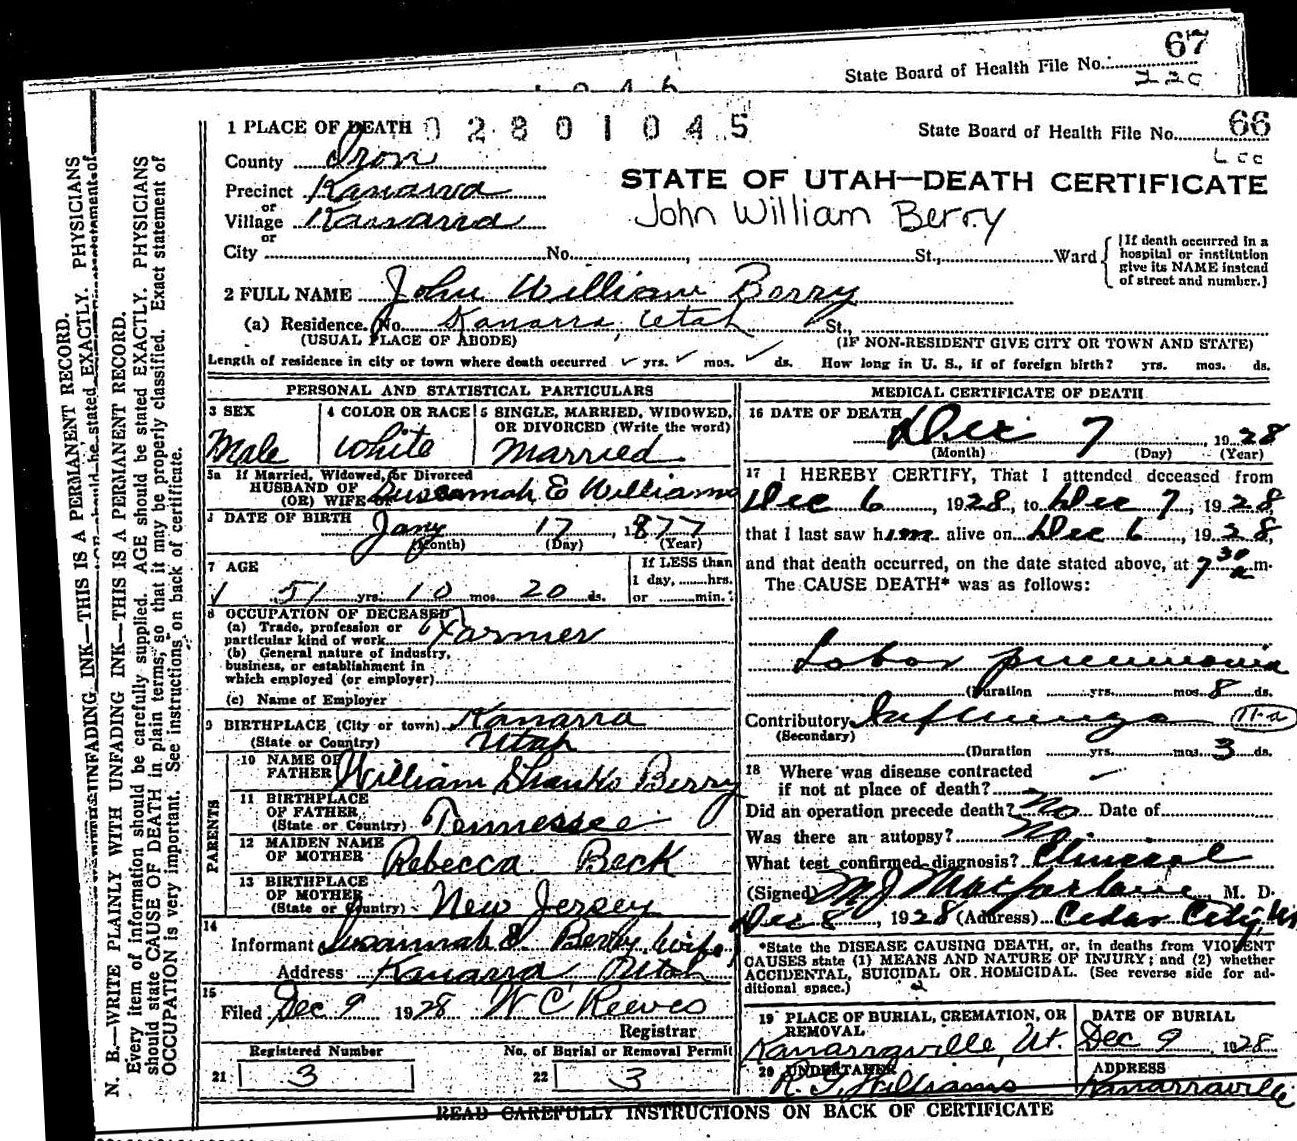 67
State Board of Health File No.
220
1 PLACE OF DEATH 02801045
State Board of Health File No. 66
County Iron
Precinct Kanarra
or
Village Kanarra
or
STATE OF UTAH—DEATH CERTIFICATE
John William Berry
City No. , St., Ward
{If death occurred in a
hospital or institution
give its NAME instead
of street and number.}
2 FULL NAME John William Berry
(a) Residence. No. Kanarra, Utah St.,
(USUAL PLACE OF ABODE) (IF NON-RESIDENT GIVE CITY OR TOWN AND STATE)
Length of residence in city or town where death occurred ✓ yrs. ✓ mos. ✓ ds. How long in U. S., if of foreign birth? yrs. mos. ds.
PERSONAL AND STATISTICAL PARTICULARS
3 SEX
Male
4 COLOR OR RACE
White
5 SINGLE, MARRIED, WIDOWED,
OR DIVORCED (Write the word)
Married
5a If Married, Widowed, or Divorced
HUSBAND OF
(OR) WIFE Susannah E Williams
DATE OF BIRTH Jany 17, 1877
(Month) (Day) (Year)
7 AGE
51 yrs. 10 mos. 20 ds.
If LESS than
1 day, hrs.
or min.
8 OCCUPATION OF DECEASED
(a) Trade, profession or
particular kind of work Farmer
(b) General nature of industry,
business, or establishment in
which employed (or employer)
(c) Name of Employer
9 BIRTHPLACE (City or town) Kanarra
(State or Country) Utah
PARENTS
10 NAME OF
FATHER William Shanks Berry
11 BIRTHPLACE
OF FATHER
(State or Country) Tennessee
12 MAIDEN NAME
OF MOTHER Rebecca Beck
13 BIRTHPLACE
OF MOTHER
(State or Country) New Jersey
14
Informant Susannah E. Berry, wife
Address Kanarra, Utah
15
Filed Dec 9 1928 W C Reeves
Registrar
Registered Number
21 3
No. of Burial or Removal Permit
22 3
MEDICAL CERTIFICATE OF DEATH
16 DATE OF DEATH
Dec 7, 1928
(Month) (Day) (Year)
17 I HEREBY CERTIFY, That I attended deceased from
Dec 6, 1928, to Dec 7, 1928,
that I last saw him alive on Dec 6, 1928,
and that death occurred, on the date stated above, at 7 30 a m.
The CAUSE DEATH* was as follows:
Lobar pneumonia
(Duration yrs. mos. 8 ds.
Contributory Influenza 11-a
(Secondary)
(Duration yrs. mos. 3 ds.
18 Where was disease contracted
if not at place of death?
Did an operation precede death? No Date of
Was there an autopsy? No
What test confirmed diagnosis? Clinical
(Signed) M J Macfarlane M. D.
Dec 8, 1928 (Address) Cedar City, Ut
*State the DISEASE CAUSING DEATH, or, in deaths from VIOLENT
CAUSES state (1) MEANS AND NATURE OF INJURY; and (2) whether
ACCIDENTAL, SUICIDAL OR HOMICIDAL. (See reverse side for ad-
ditional space.)
19 PLACE OF BURIAL, CREMATION, OR
REMOVAL
Kanarraville, Ut.
DATE OF BURIAL
Dec 9 1928
20 UNDERTAKER
R. J. Williams
ADDRESS
Kanarraville
READ CAREFULLY INSTRUCTIONS ON BACK OF CERTIFICATE
N. B.—WRITE PLAINLY WITH UNFADING INK—THIS IS A PERMANENT RECORD.
Every item of information should be carefully supplied. AGE should be stated EXACTLY. PHYSICIANS
should state CAUSE OF DEATH in plain terms, so that it may be properly classified. Exact statement of
OCCUPATION is very important. See instructions on back of certificate.
UNFADING INK—THIS IS A PERMANENT RECORD.
should be stated EXACTLY. PHYSICIANS